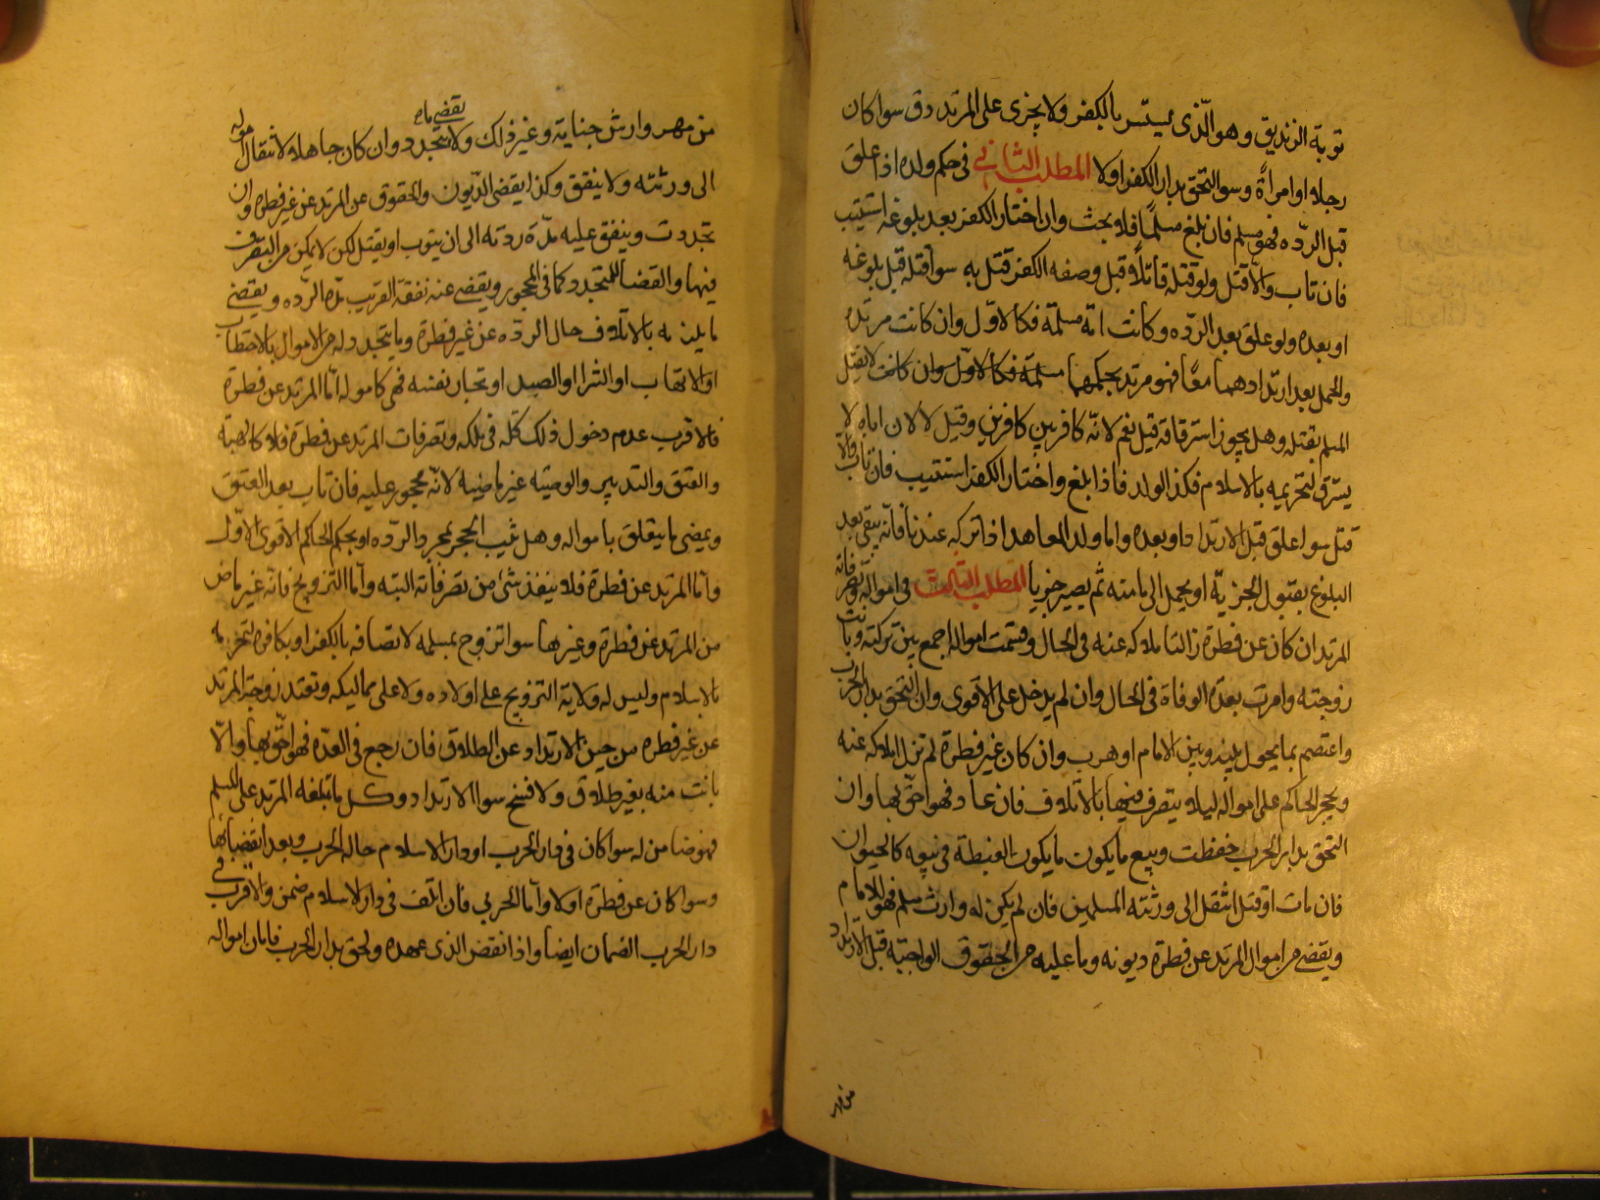 توبة الزنديق وهو الّذى يستتر بالكفر ولا يجرى على المرتد رق سوا كان
رجلا او امراةً وسوا التحق بدار الكفر اولا المطلب الثانى فى حكم ولده اذا علق
قبل الردّه فهو مسلم فان بلغ مسلمًا فلا بحث وان اختار الكفر بعد بلوغه استتيب
فان تاب والّا قتل ولو قتله قاتل قبل وصفه الكفر قتل به سوا قتله قبل بلوغه
او بعده ولو علق بعد الردّه وكانت امّه مسلمة فكالاوّل وان كانت مرتده
والحمل بعد ارتدادهما معًا فهو مرتد بحكمهما مسلمة فكالاوّل وان كانت لا يقتل
المسلم بقتله وهل يجوز استرقاقه قيل نعم لانّه كافر بين كافرين وقيل لا لان اباه لا
يسترق لتحرمه بالاسلام فكذا الولد فاذا بلغ واختار الكفر استتيب فان تاب والّا
قتل سوا علق قبل الارتداد او بعده واما ولد المعاهد اذا تركه عندنا فانّه يبقى بعد
البلوغ بقبول الجزيّة او يحمل الى مامنه ثم يصير حربيا المطلب الثالث فى امواله وتصرفاته
المرتد ان كان عن فطرة زالت املاكه عنه فى الحال وقسمت امواله اجمع بين تركته وبانت
زوجته وامرت بعدة الوفاة فى الحال وان لم يدخل على الاقوى وان التحق بدار الحرب
واعتصم بما يحول بينه وبين الامام او هرب وان كان غير فطرة لم تزل املاكه عنه
ويحجر الحاكم على امواله ليلا يتصرف فيها بالاتلاف فان عاد فهو احق بها وان
التحق بدار الحرب حفظت وبيع ما يكون ما يكون الغبطة فى بيعه كالحيوان
فان مات او قتل انتقل الى ورثته المسلمين فان لم يكن له وارث مسلم فهو للامام
ويقضى من اموال المرتد عن فطرة ديونه وما عليه من الحقوق الواجبة قبل الارتداد
من مهر
من مهر وارش جناية وغير ذلك ولا يقضى ما يتجدد وان كان جاهلا لانتقال امواله
الى ورثته ولا ينفق وكذا يقضى الدّيون والحقوق عن المرتد عن غير فطرة وان
تجددت وينفق عليه مدّة ردته الى ان يتوب او يقتل لكن لا يمكن من التصرف
فيها والقضا للمتجدد كما فى المحجور ويقضى عنه نفقة القريب مدّه الردّه ويقضى
ما يلزمه بالاتلاف حال الردّه عن غير فطرة وما يتجدد له من الاموال بالاحتطاب
او الاتهاب او الشرا او الصيد او تجار بنفسه فهى كامواله امّا المرتد عن فطرة
فالاقرب عدم دخول ذلك كله فى ملكه وتصرفات المرتد عن فطرة فلا كالهبة
والعتق والتدبير والوصيّة غير ماضية لانّه محجور عليه فان تاب بعد العتق
ويمضى ما يتعلق بامواله وهل يثبت الحجر بمجرد الردّه او بحكم الحاكم الاقوى الاوّل
وامّا المرتد عن فطرة فلا ينفذ شئ من تصرفاته البته وامّا التزويج فانّه غير ماض
من المرتد عن فطرة وغيرها سوا تزوج بمسلمه لاتصافه بالكفر او بكافره لتحرمه
بالاسلام وليس له ولاية التزويج على اولاده ولا على مماليكه وتعتد زوجة المرتد
عن غير فطره من حين الارتداد عن الطلاق فان رجع فى العدّه فهو احق بها والّا
بانت منه بغير طلاق ولا فسخ سوا الارتداد وكل ما يتلفه المرتد على المسلم
فهو ضامن له سوا كان فى دار الحرب او دار الاسلام حاله الحرب وبعد انقضائها
وسوا كان عن فطرة اولا وامّا الحربى فان اتلف فى دار الاسلام ضمن والاقرب فى
دار الحرب الضمان ايضا واذا نقض الذمى عهده ولحق بدار الحرب فامان امواله